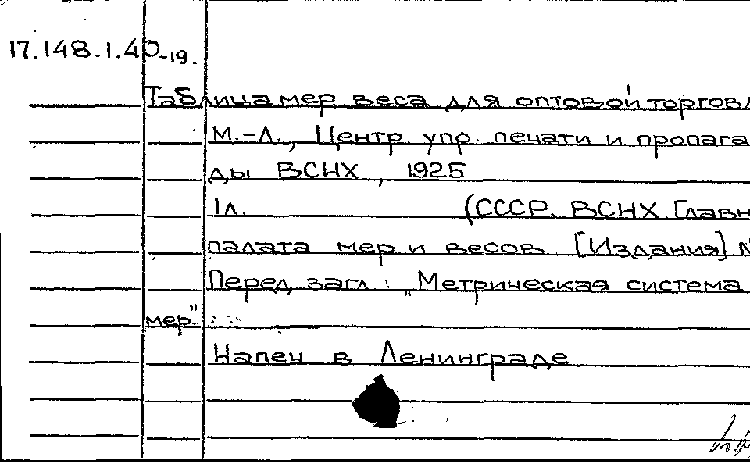 17.148.1.40-19.
Таблица мер веса для оптовой торговл
М.-Л., Центр. упр. печати и пропага
ды ВСНХ, 1925
1л. (СССР. ВСНХ. Главн
палата мер и весов. [Издания] №
Перед загл.: "Метрическая система
мер"
Напеч в Ленинграде